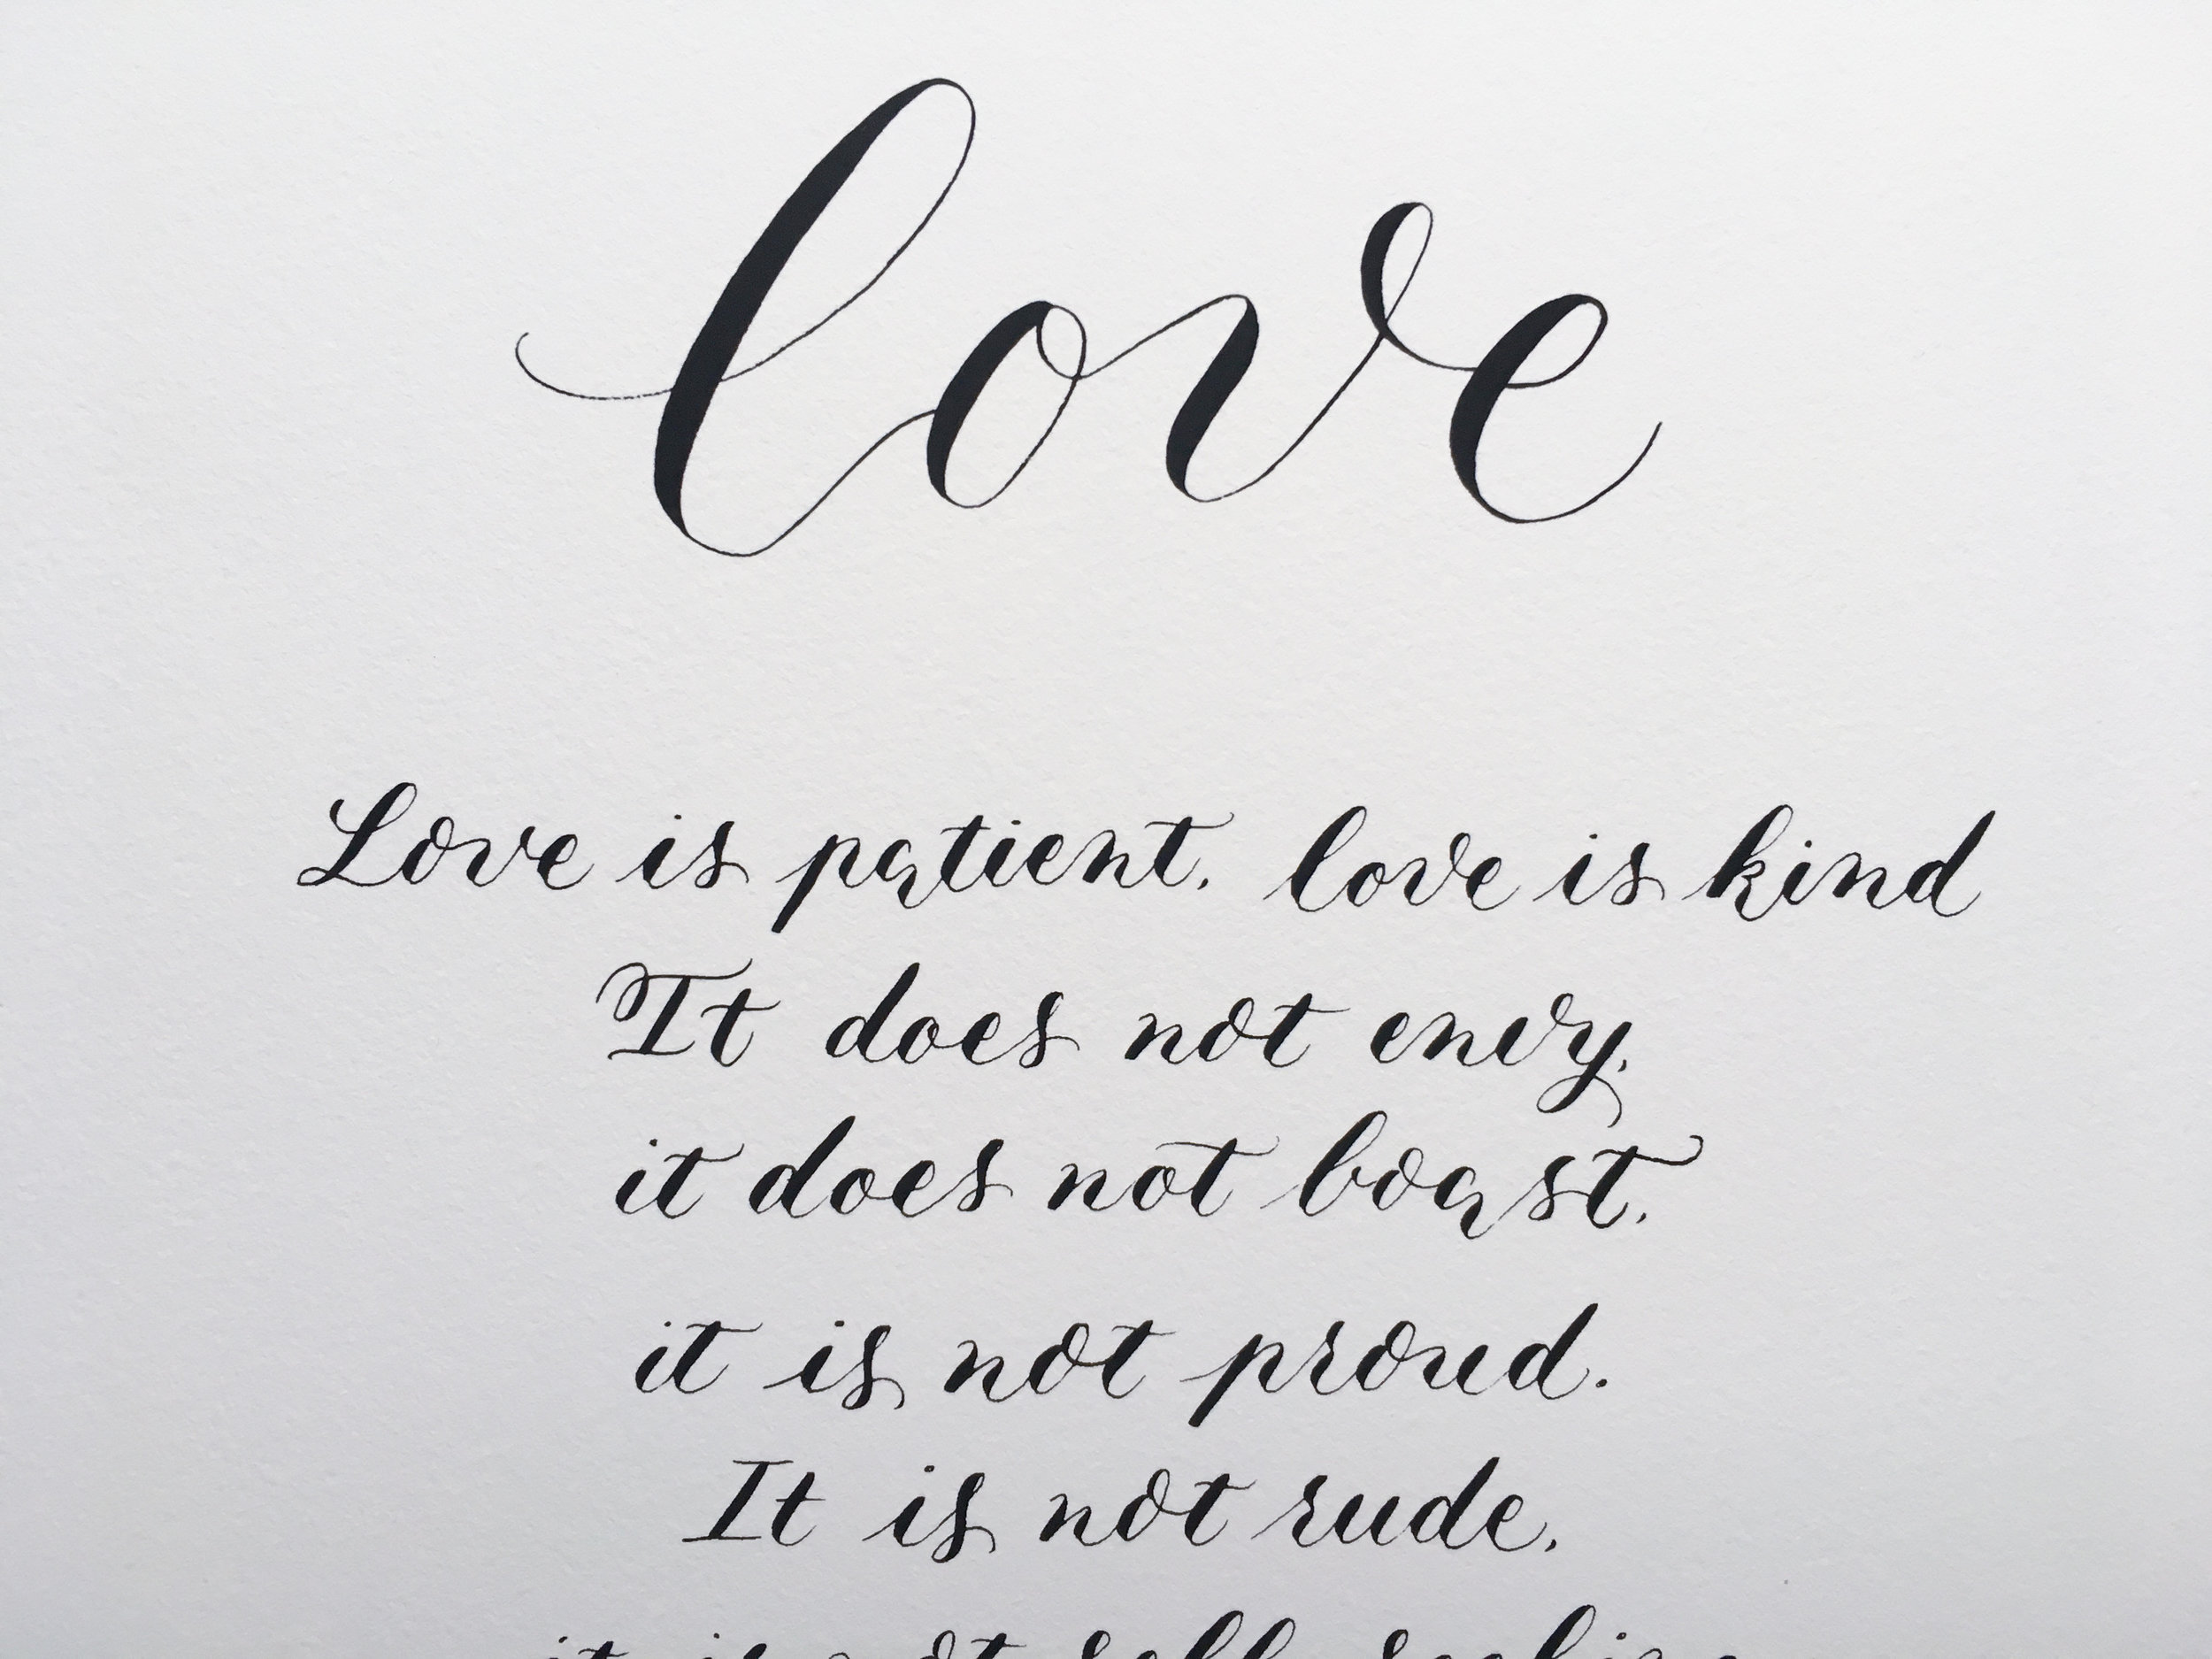 love
Love is patient, love is kind
It does not envy,
it does not boast,
it is not proud.
It is not rude,
it is not self seeking